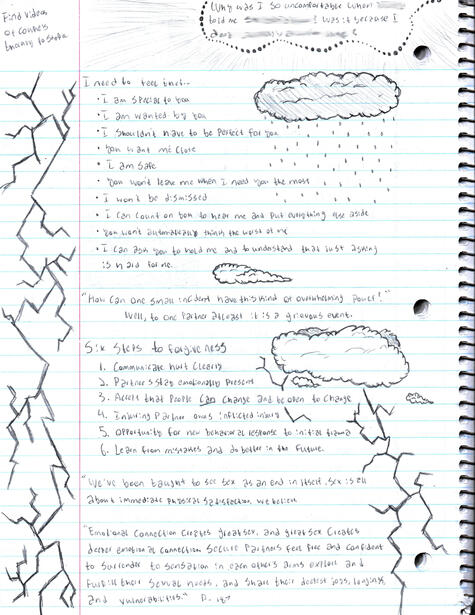 Find videos
of couples
(Why was I so uncomfortable when
told me ? Was it because I
?
I need to feel that...
• I am special to you
• I am wanted by you
• I shouldn't have to be perfect for you
• You want me close
• I am safe
• You won't leave me when I need you the most
• I won't be dismissed
• I can count on you to hear me and put everything else aside
• You won't automatically think the worst of me
• I can ask you to hold me and to understand that just asking
is hard for me.
"How can one small incident have this kind of overwhelming power?"
Well, to one partner atleast it is a grievous event.
Six steps to forgiveness
1. Communicate hurt clearly
2. Partners stay emotionally present
3. Accept that people can change and be open to change
4. Injuring partner owns inflicted injury
5. Opportunity for new behavioral response to initial trauma
6. Learn from mistakes and do better in the future.
"We've been taught to see sex as an end in itself. Sex is all
about immediate physical satisfaction, we believe
"Emotional connection creates great sex, and great sex creates
deeper emotional connection. Secure partners feel free and confident
to surrender to sensation in each others arms explore and
fulfill their sexual needs, and share their deepest joys, longings,
and vulnerabilities." P. 187